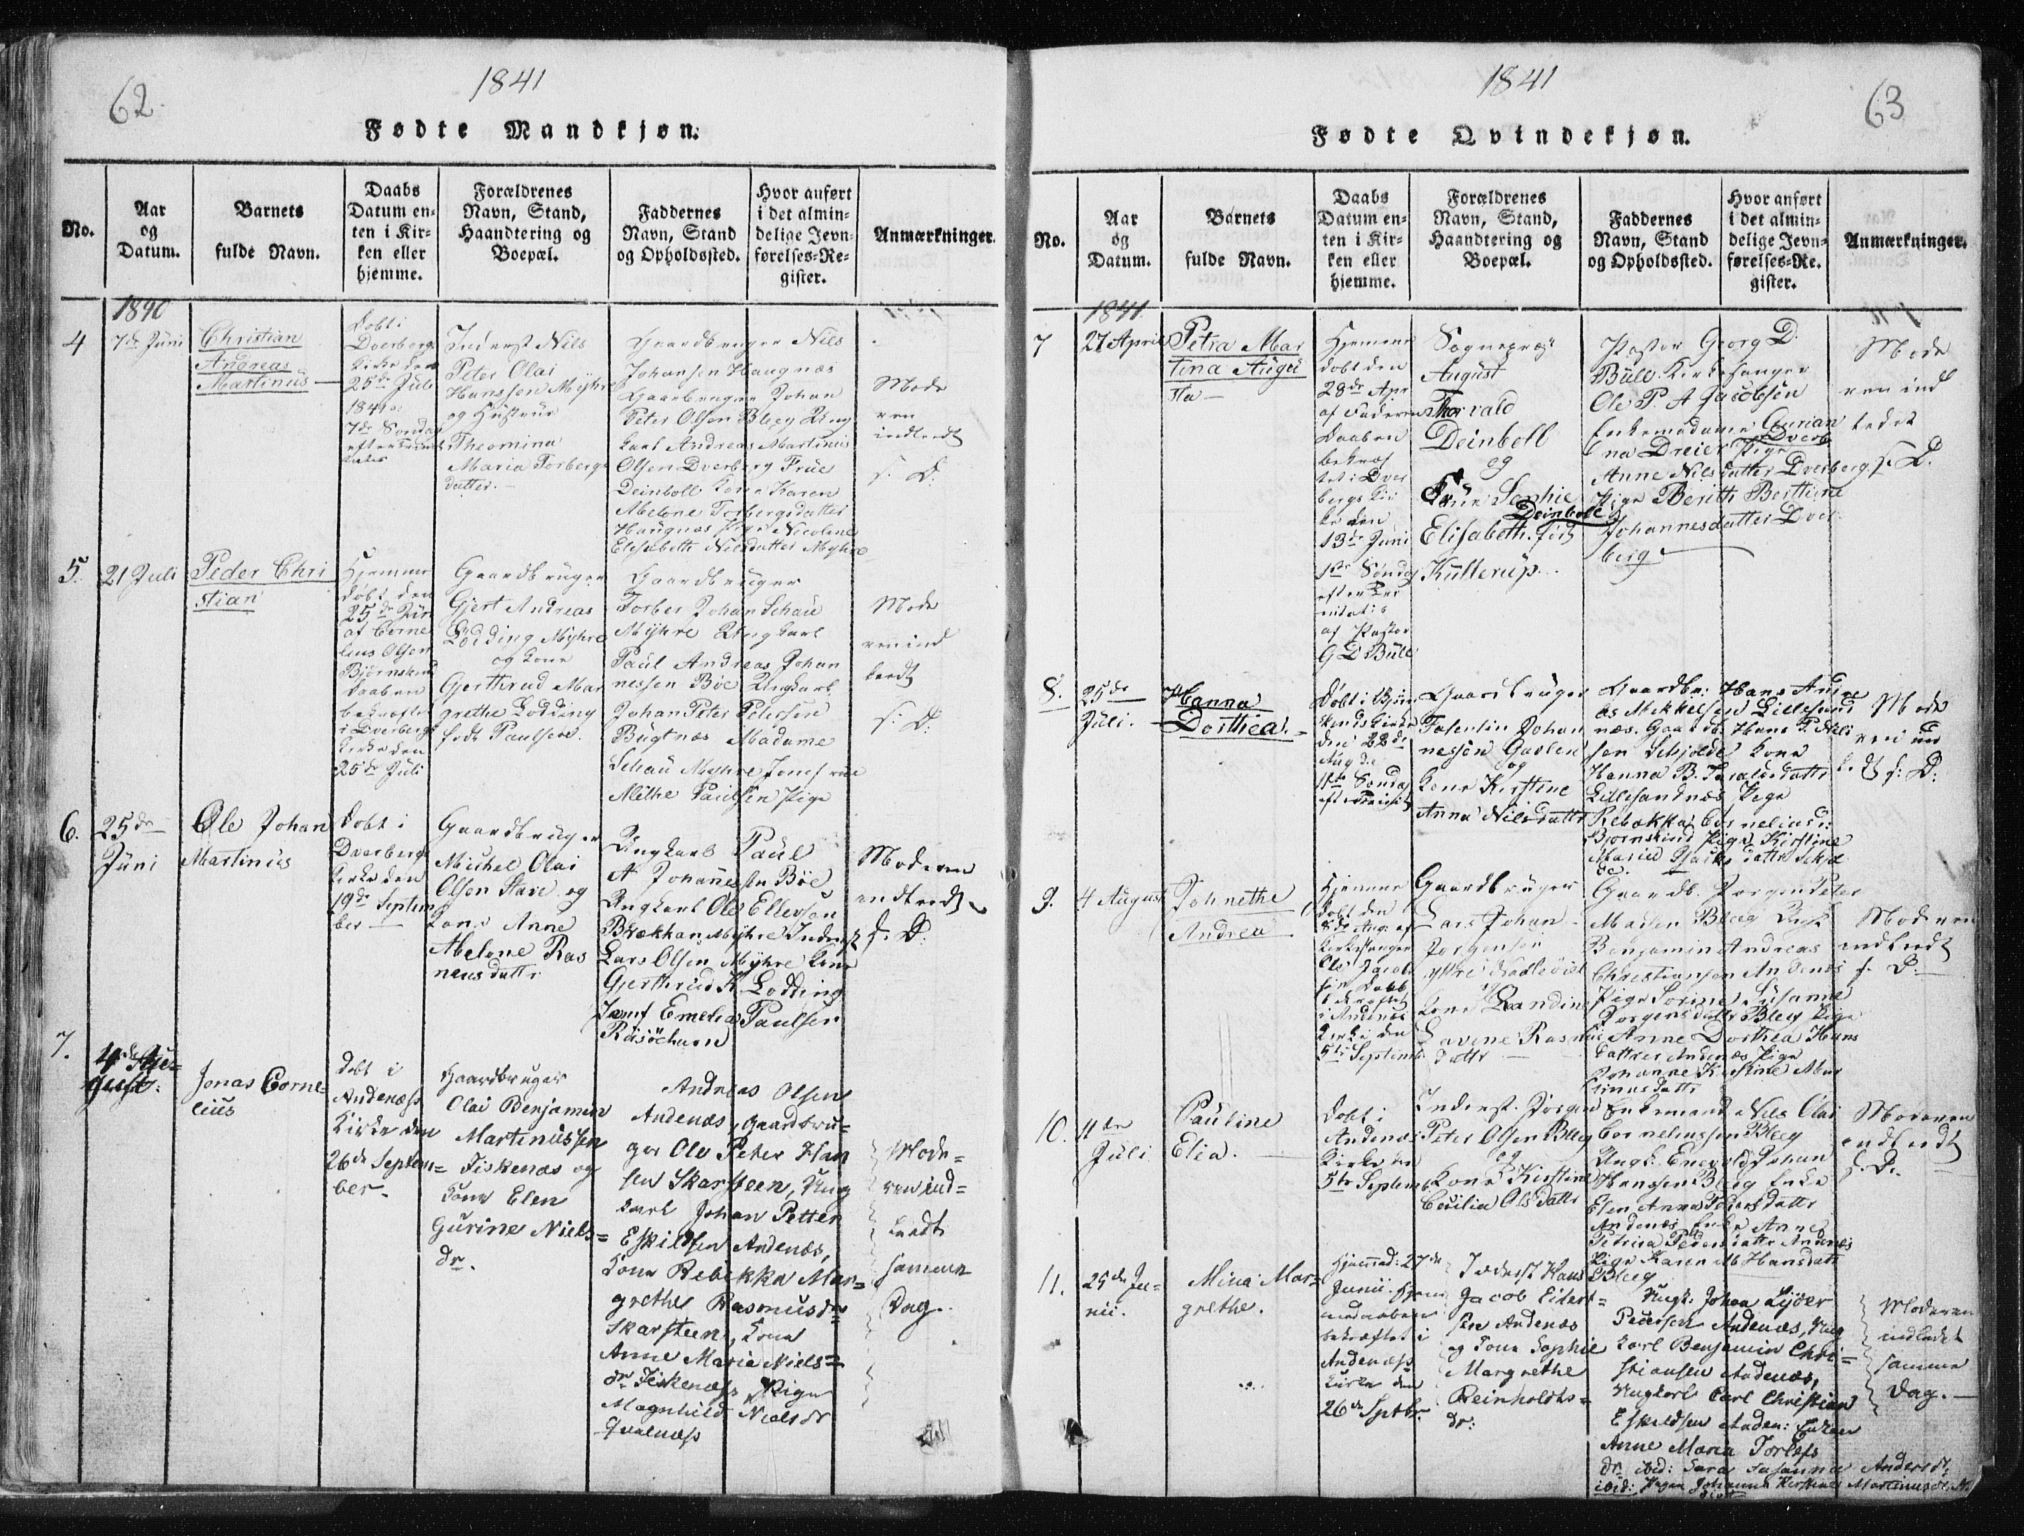 62
1841
Fødte Mandkjøn.
No.
Aar
og
Datum.
Barnets
fulde Navn.
Daabs
Datum en-
ten i Kir-
ken eller
hjemme.
Forældrenes
Navn, Stand,
Haandtering og
Boepæl.
Faddernes
Navn, Stand
og Opholdssted.
Hvor anført
i det almin-
delige Jevn-
førelses-Re-
gister.
Anmærkninger.
1840
4
7de Juni
Christian
Andreas
Martinus
Døbt i
Dverberg
Kirke den
25de Juli
1841
7de Søndag
Inderst Nils
Peter Olai
Hanssen Myhre
og Hustrue
Theomina
Maria Torbergs
datter.
Gaardbruger Nils
Johansen Haugnæs
Gaardbruger Johan
Peter Olsen Bleeg Ung
karl Andreas Martinus
Olsen Dverberg Frue
Deinboll Kone Karen
Abelone Torbergsdatter
Haugnæs Pige Nicoline
Elisabeth Nilsdatter Myhre
Mode
ren
indledt
f: D:
5.
21 Juli
Peder Chri
stian
Hjemme
døbt den
25de Juli
af Corne
lius Olsen
Bjørnskin
Daaben
bekræftet
i Dverberg
Kirke den
25de Juli
Gaardbruger
Gjert Andreas
Lodding Myhre
og Kone
Gjerthrud Mar
grethe Lodding
født Paulsen.
Gaardbruger
Torber Johan Schau
Myhre Ungkarl
Paul Andreas Johan
nessen Bøe Ungkarl
Johan Peter Petersen
Bugtnæs Madame
Schau Myhre Jomfrue
Mithe Paulsen Pige
Mode
ren ind
ledt
f: D:
6.
25de
Juni
Ole Johan
Martinus
Døbt i
Dverberg
Kirke den
19de Septem
ber
Gaardbruger
Michel Olai
Olsen Stave og
Kone Anne
Abelone Ras
musdattr
Ungkarl Paul
A Johannesen Bøe
Ungkarl Ole Ellevsen
Brækkan Myhre Inderst
Lars Olsen Myhre Kone
Gjerthrud K Lodding
Jomf Emelia Paulsen
Risøehavn
Moderen
indledt
f. D:
7.
4de Au-
gust.
Jonas Corne-
lius
Døbt i
Andenæss
Kirke den
26de Septem-
ber.
Gaardbruger
Olai Benjamin
Martinussen
Fiskenæs og
Kone Elen
Gurine Niels-
dr.
Andreas Olsen
Andenæs, Gaardbru-
ger Ole Peter Han
sen Skarsteen, Ung
karl Johan Petter
Eskildsen Andenæs,
Kone Rebekka Mar-
grethe Rasmusdr
Skarsteen, Kone
Anne Maria Niels-
dr Fiskenæss Pige
Magnhild Nielsdr
Qvalnæss
Mode-
ren ind-
ledt
samme
Dag.
1841
63
Fødte Qvindekjøn.
No.
Aar
og
Datum.
Barnets
fulde Navn.
Daabs
Datum en-
ten i Kir-
ken eller
hjemme.
Forældrenes
Navn, Stand,
Haandtering og
Boepæl.
Faddernes
Navn, Stand
og Opholdssted.
Hvor anført
i det almin-
delige Jevn-
førelses-Re-
gister.
Anmærkninger.
1841
7
27 April
Petra Mar
tina Augu
sta
Hjemme
døbt den
28de Apr
af Faderen
Daaben
bekræf
tet i Dver
bergs Kir
ke den
13de Juni
1ste Søndag
efter Tri
nitatis
af Pastor
G D Bull
Sognepræst
August
Thorvald
Deinboll
og
Frue Sophie
Deinboll
Elisabeth født
Kullerup.
Pastor Georg D.
Bull Kirkesanger
Ole P. A Jacobsen
Enkemadame Laurian
na Dreier Dverb Pige
Anne Nilsdatter Dverberg
Pige Berith Berthine
Johannesdatter Dver
berg
Mode
ren ind
ledet
f. D.
8.
25de
Juli.
Hanna
Dorthea.
Døbt i Bjørn
skinds Kirke
den 22de
Aug
11te Søndag
Gaardbruger
Tosentin Johan
nessen Gavlen
og
Kone Kirstine
Anna Nilsdatter
Gaardbr: Hans Andre
as Mikkelsen Lillesand
næs. Gaardb. Hans P. Nil
sen Schjolde Kone
Hanna B.
Lillesandnæs Pige
Rebækka Corneliusd:
Bjørnskind Pige Kirstine
Maria
Mode
ren ind
ledt f: D:
9.
4 August
Johnethe
Andrea
Hjemme
døbt den
Aug: af
Kirkesanger
Ole Jacob
sen Daab
bekræftet
i Andenæs
Kirke den
5te Septemb
Gaardbruger
Lars Johan
Jørgensen
og
Kone Randine
Lavine Rasmus
dattr
Gaardb. Jørgen Peter
Madsen Bleeg
Benjamin Andreas
Christiansen Andenæs
Pige Sorine Susanne
Jørgensdattr Bleeg Pige
Anne Dorthea Hans
dattr Andenæs Pige
Johanne Kirstine Mar
tinusdattr
Moderen
indledt
f. D:
10.
11te
Juli
Pauline
Elia.
Døbt i
Andenæs
Kirke den
5te Septem
Inderst. Jørgen
Peter Olsen Bleeg
og
Kone Kirstine
Cecilia Olsdattr
Enkemand Nils Olai
Corneliussen Bleeg
Ungk: Enevold Johan
Hansen Bleeg Enke
Elen Anna Pedersdattr
Andenæs Enke Anne
Petrina Pedersdattr Andenæs
Pige Karen M Hansdattr
Bleeg
Moderen
indledt
f. D:
11.
25de Ju-
nii.
Mina Mar-
grethe.
Hjemmed: 27de
Junii
bekræftet i
Andenæss
Kirke den
26de Septbr.
Inderst Hans
Jacob Eilert-
sen Andenæs
og Kone Sophie
Margrethe
Reinholdts-
dr:
Ungk: Johan
Pedersen Andenæs, Ung
karl Benjamin Chri-
stiansen Andenæs,
Ungkarl Carl Christian
Eskeldsen Anden: Enken
Anne Maria
dr ibid: Sara Susanna Andersdr.
ibid: Pigen Johanna Kirstine Martinusdr
Moderen
indledet
samme
Dag.